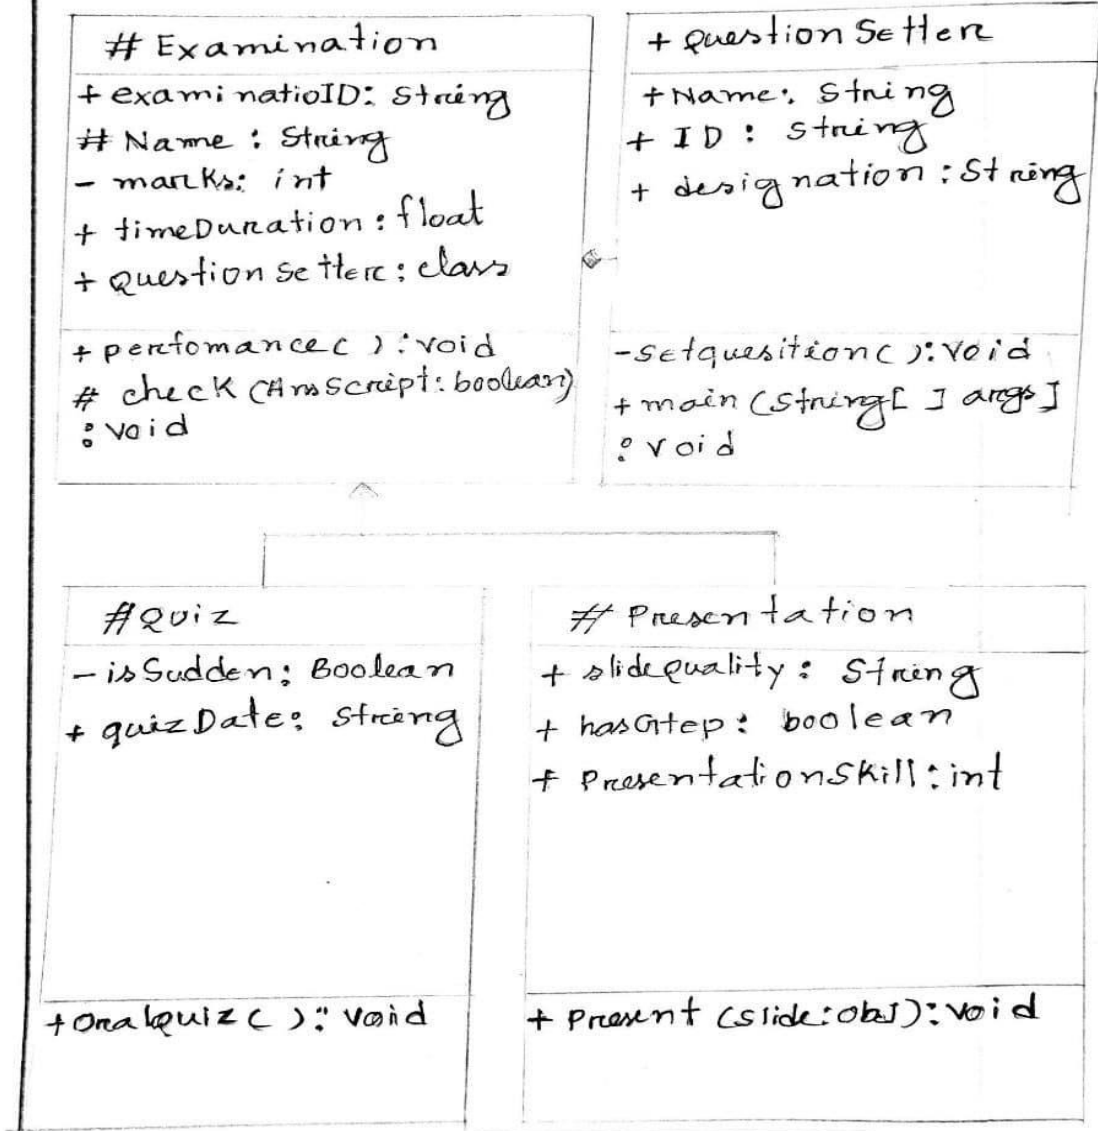 # Examination
+ examinatioID: String
# Name : String
- marks: int
+ timeDuration: float
+ Questionsetter: class
+ perfomance( ): void
# check (AnsScript: boolean)
: void
+ QuestionSetter
+ Name: String
+ ID : String
+ designation : String
- setquesition( ): void
+ main (String[ ] args]
: void
# Quiz
- isSudden: Boolean
+ quizDate: String
+ Oralquiz( ): void
# Presentation
+ slideQuality : String
+ hasGtep : boolean
+ PresentationSkill : int
+ Present (slide: obj): void